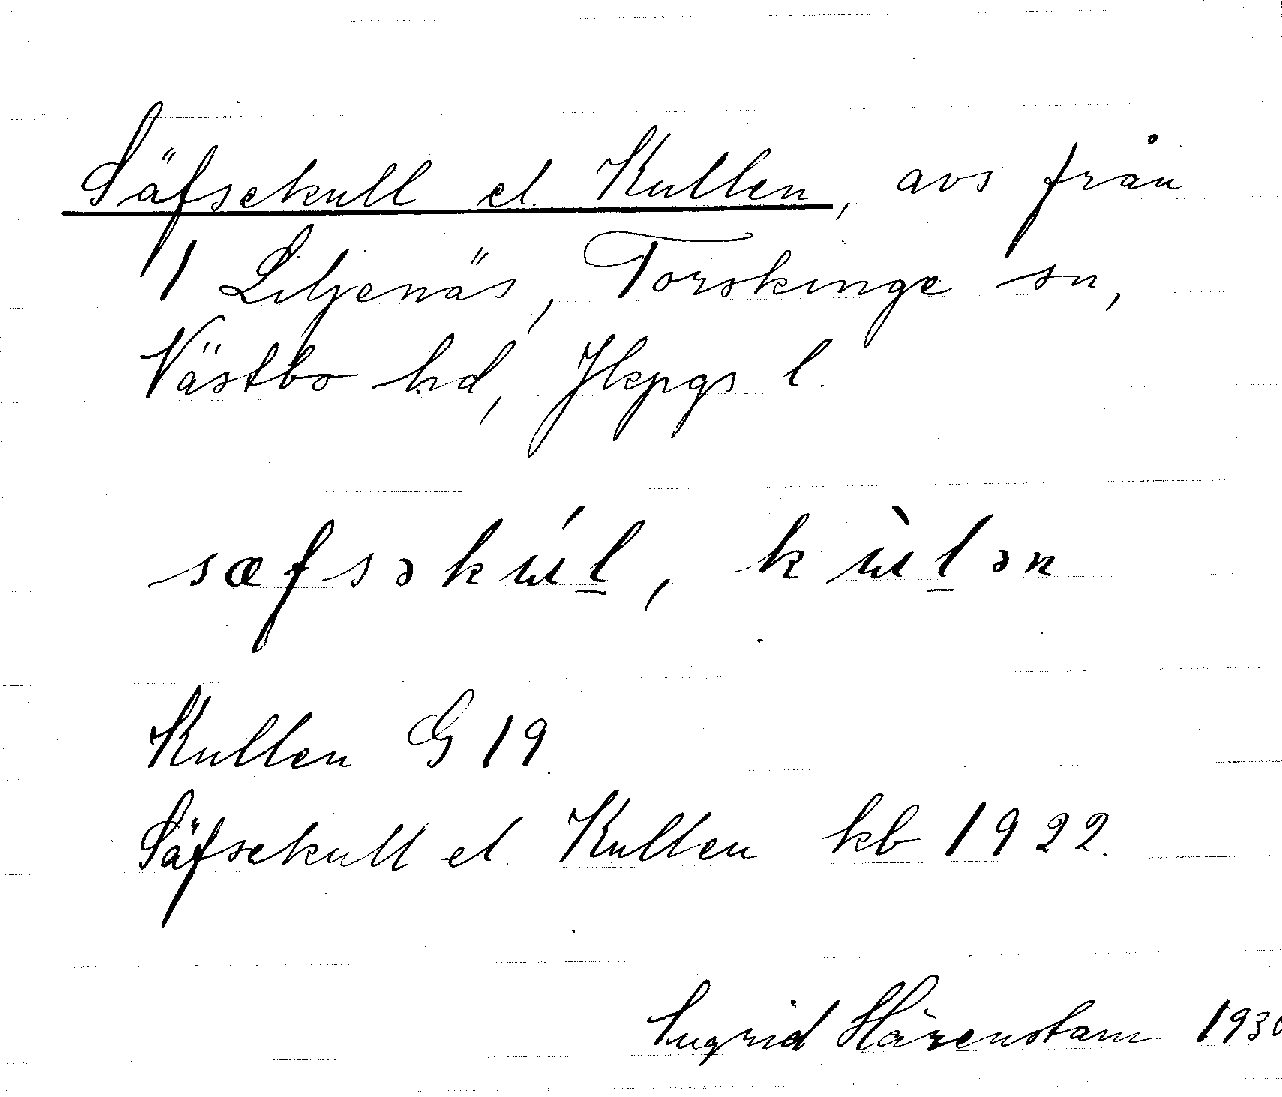 Säfsekull el. Kullen, avs från
1 Liljenäs, Torskinge sn,
Västbo hd, Jkpgs l.
sæfsəkúl, kùlən
Kullen G 19
Säfsekull el. Kullen kb 1922.
Ingrid Härenstam